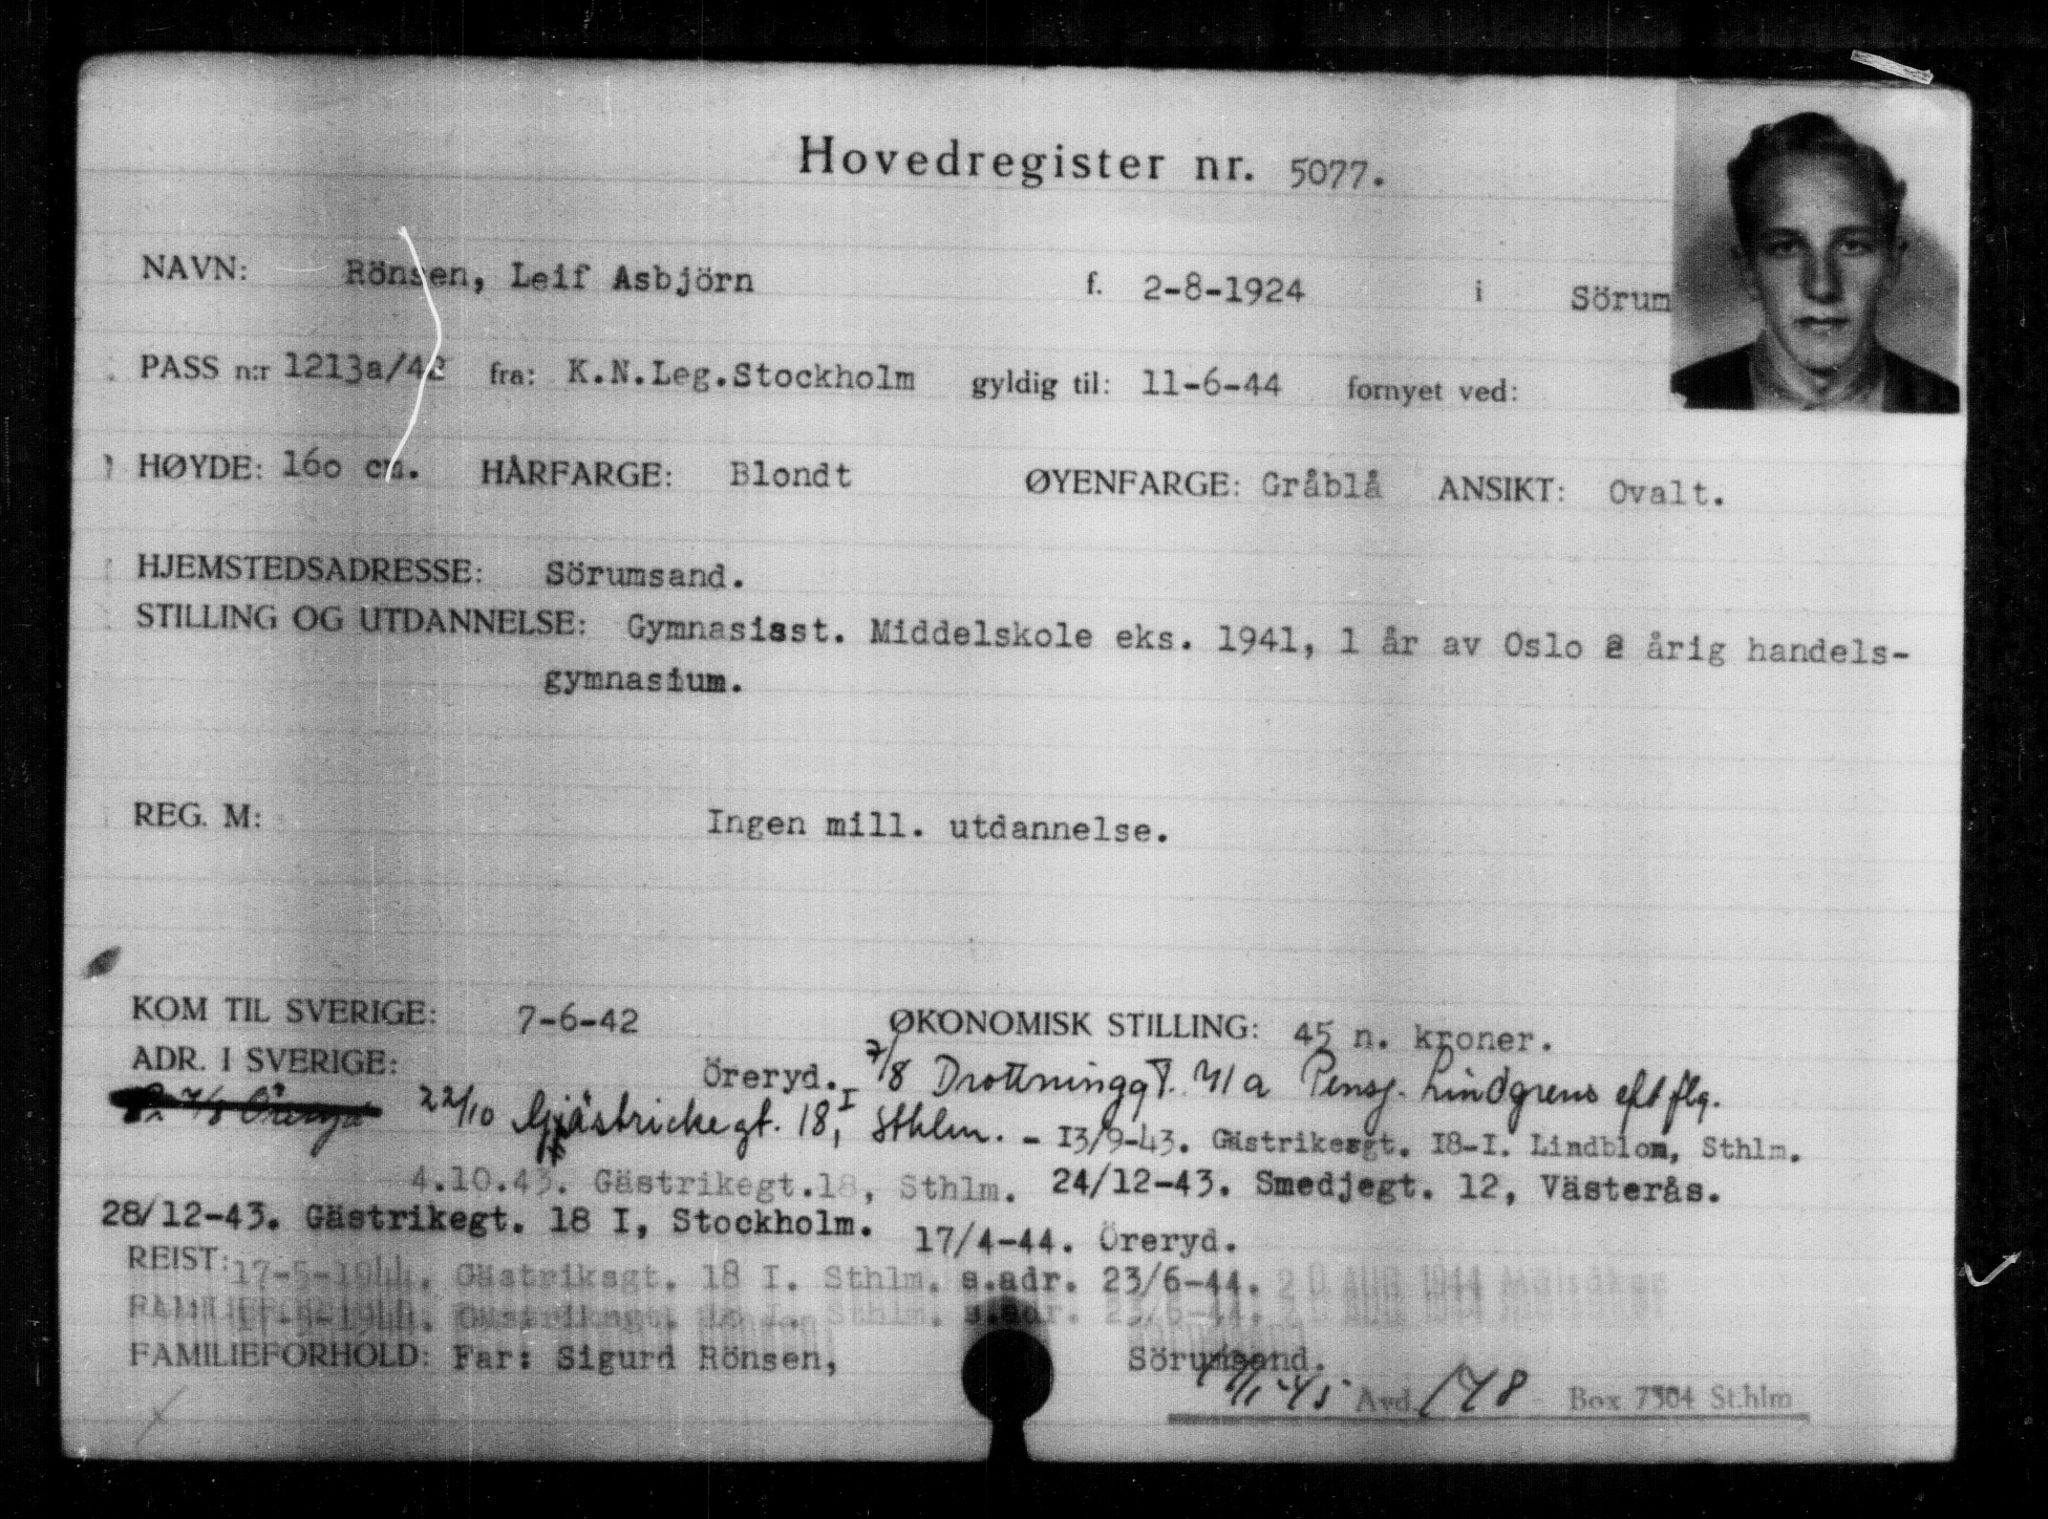 Hovedregister nr. 5077.
NAVN: Rönsen, Leif Asbjörn f. 2-8-1924 i Sörum
PASS n:r 1213a/42 fra: K.N.Leg.Stockholm gyldig til: 11-6-44 fornyet ved:
HØYDE: 160 cm. HÅRFARGE: Blondt ØYENFARGE: Gråblå ANSIKT: Ovalt.
HJEMSTEDSADRESSE: Sörumsand.
STILLING OG UTDANNELSE: Gymnasisst. Middelskole eks. 1941, 1 år av Oslo 2 årig handels-
gymnasium.
REG. M: Ingen mill. utdannelse.
KOM TIL SVERIGE: 7-6-42 ØKONOMISK STILLING: 45 n. kroner.
ADR. I SVERIGE: Öreryd. 7/8 Drottninggt. 71a Pensj. Lindgrens eft flg.
7/8 Öreryd 22/10 Gjästrickegt. 18, I Sthlm. - 13/9-43. Gästrikesgt. 18-I. Lindblom, Sthlm.
4.10.43. Gästrikegt.18, Sthlm. 24/12-43. Smedjegt. 12, Västerås.
28/12-43. Gästrikegt. 18 I, Stockholm. 17/4-44. Öreryd.
REIST: 17-5-1944. Gästriksgt. 18 I. Sthlm. s.adr. 23/6-44. 20 AUG 1944
FAMILIEFORHOLD: Far: Sigurd Rönsen, Sörumsand.
Avd. 178 - Box 7304 Sthlm